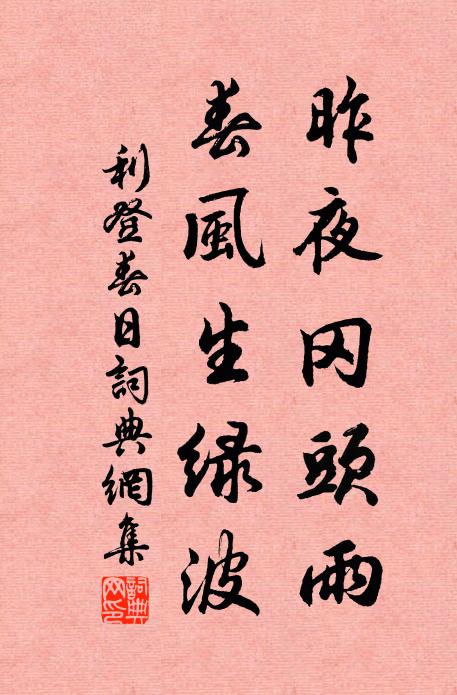 昨夜冈頭雨
春風生绿波
利登春日詞典網集
詞典网印